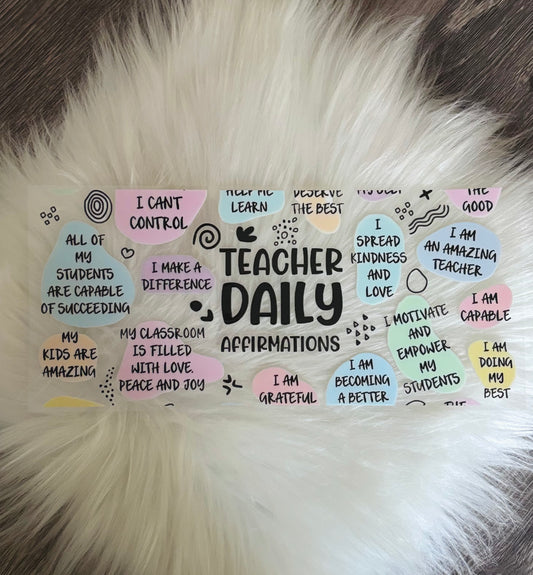 I CANT
CONTROL
HELP ME
LEARN
DESERVE
THE BEST
MYSELF
THE
GOOD
ALL OF
MY
STUDENTS
ARE CAPABLE
OF SUCCEEDING
I MAKE A
DIFFERENCE
TEACHER
DAILY
AFFIRMATIONS
I
SPREAD
KINDNESS
AND
LOVE
I AM
AN AMAZING
TEACHER
I AM
CAPABLE
MY
KIDS ARE
AMAZING
MY CLASSROOM
IS FILLED
WITH LOVE.
PEACE AND JOY
I AM
GRATEFUL
I AM
BECOMING
A BETTER
I MOTIVATE
AND
EMPOWER
MY
STUDENTS
I AM
DOING
MY
BEST